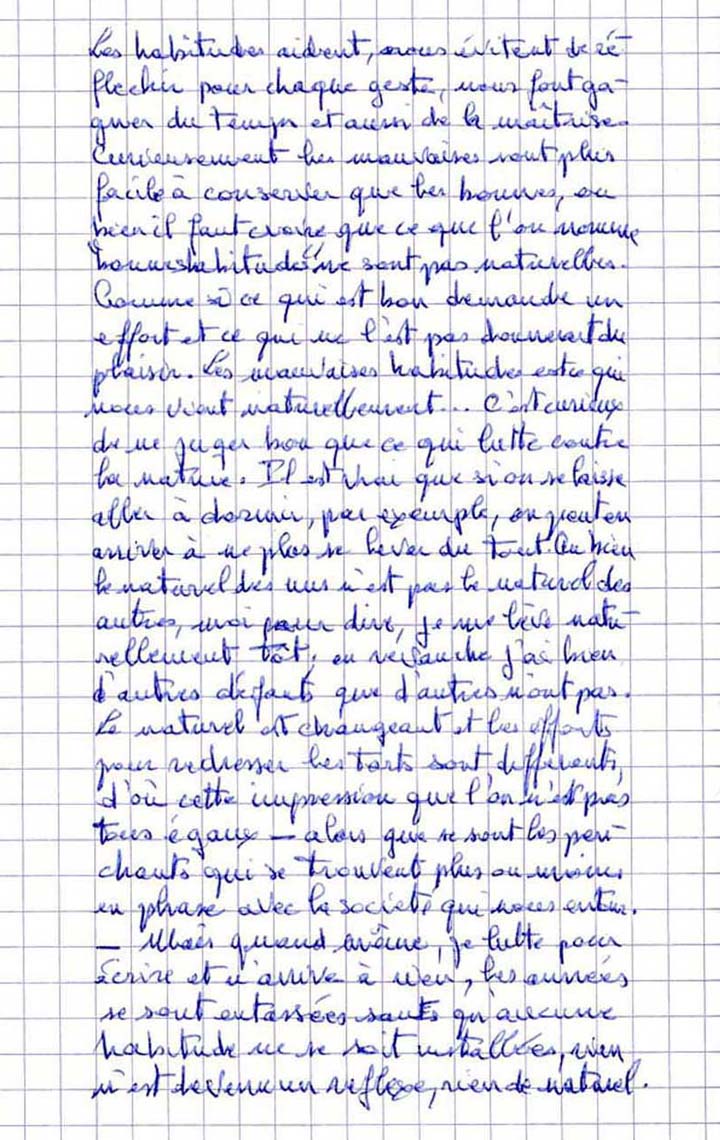 Les habitudes aident, nous évitent de ré-
flechir pour chaque geste, nous font ga-
gner du temps et aussi de la maîtrise.
Curieusement les mauvaises sont plus
facile à conserver que les bonnes, ou
bien il faut croire que ce que l'on nomme
"bonnes habitudes" ne sont pas naturelles.
Comme si ce qui est bon demande un
effort et ce qui ne l'est pas donnerait du
plaisir. Les mauvaises habitudes est ce qui
nous vient naturellement... C'est curieux
de ne juger bon que ce qui lutte contre
la nature. Il est vrai que si on se laisse
aller à dormir, par exemple, on peut en
arriver à ne plus se lever du tout. Ou bien
le naturel des uns n'est pas le naturel des
autres, moi pour dire, je me lève natu-
rellement tôt, en revanche j'ai bien
d'autres défauts que d'autres n'ont pas.
Le naturel est changeant et les efforts
pour redresser les torts sont différents,
d'où cette impression que l'on n'est pas
tous égaux — alors que se sont les pen-
chants qui se trouvent plus ou moins
en phrase avec la société qui nous entoure.
— Mais quand même, je lutte pour
écrire et n'arrive à rien, les années
se sont entassées sants qu'aucune
habitude ne se soit installées, rien
n'est devenu un reflexe, rien de naturel.